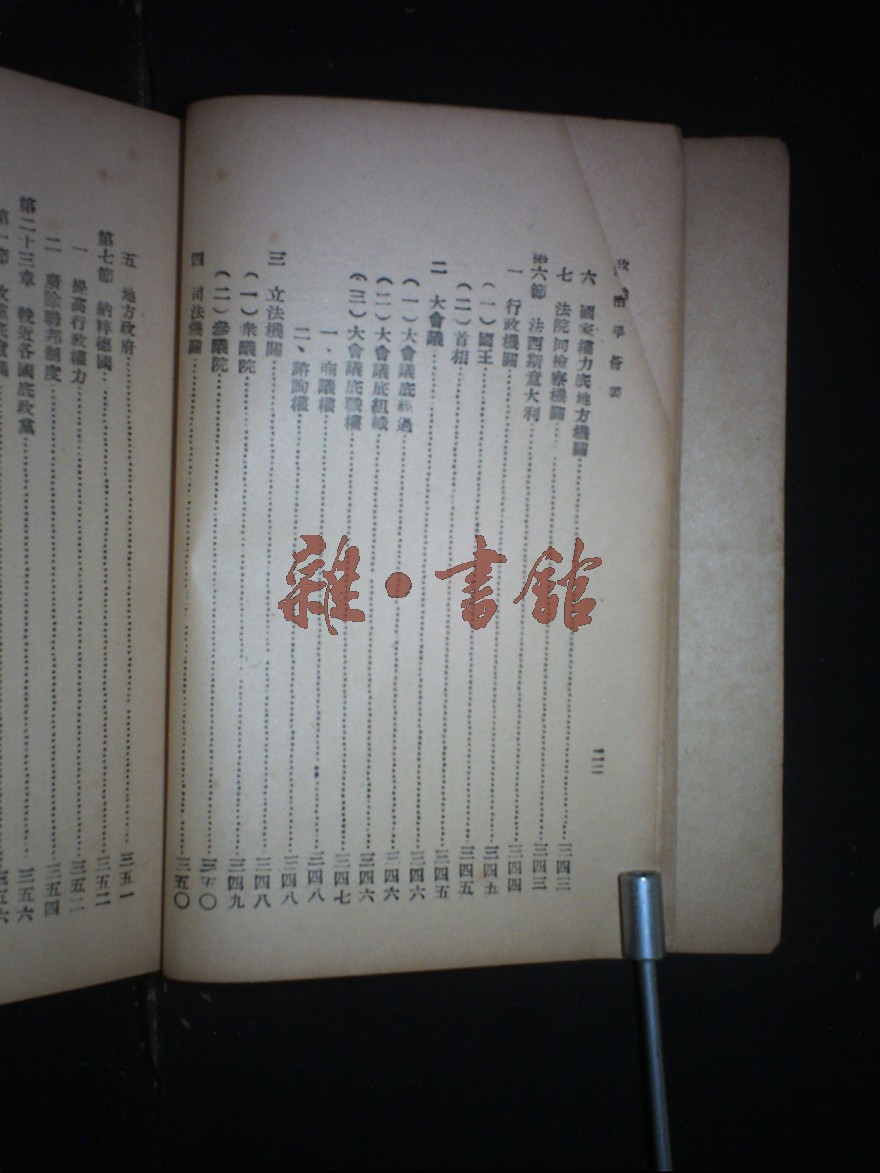 政治學各論
六 國家權力底地方機關 三四三
七 法院同檢察機關 三四三
第六節 法西斯意大利 三四三
一 行政機關 三四四
（一）國王 三四五
（二）首相 三四五
二 大會議 三四五
（一）大會議底 過 三四六
（二）大會議底組織 三四六
（三）大會議底職權 三四六
一、商議權 三四七
二、諮詢權 三四八
三 立法機關 三四八
（一）衆議院 三四九
（二）參議院 三五〇
四 司法機關 三五〇
二二
五 地方政府 三五一
第七節 納粹德國 三五二
一 提高行政權力 三五二
二 廢除聯邦制度 三五四
第二十三章 輓近各國底政黨 三五六
第一節 政黨底意義 三五六
雜·書館